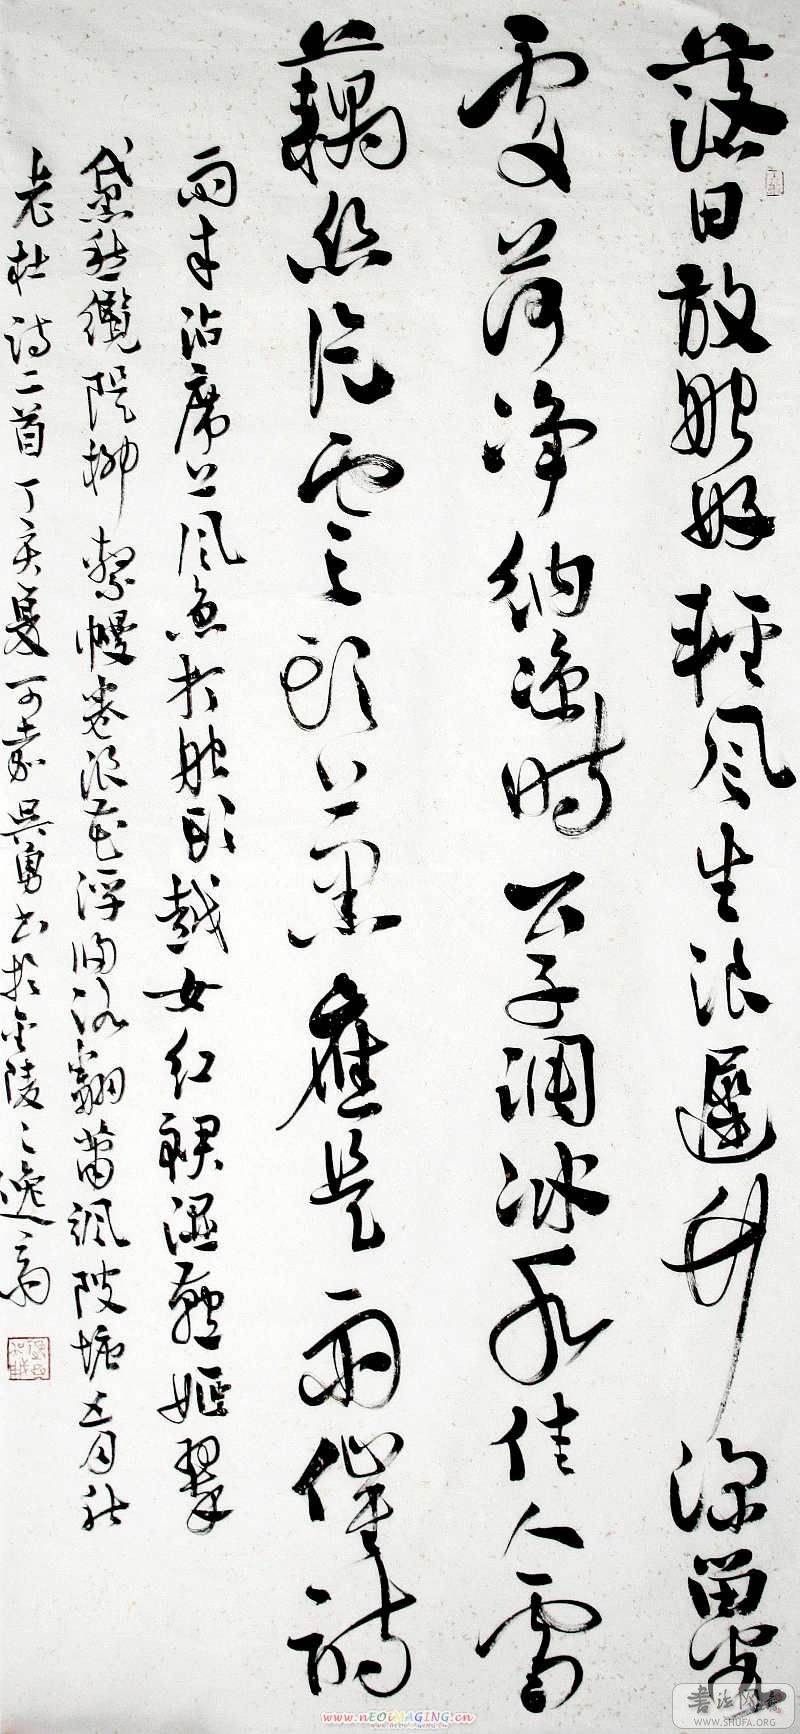 落日放船好輕風生浪遲竹深留客
處荷净納涼時公子調冰水佳人雪
藕絲片雲頭上黑應是雨催詩
雨来沾席上風急打船頭越女紅裙濕燕姬翠
黛愁纜隄柳繫幔卷浪花浮歸路翻蕭颯陂塘五月秋
老杜詩二首丁亥夏可嘉吳勇書於金陵之逸
www.nEOiMAGING.cn
书法网
WWW.SHUFA.ORG